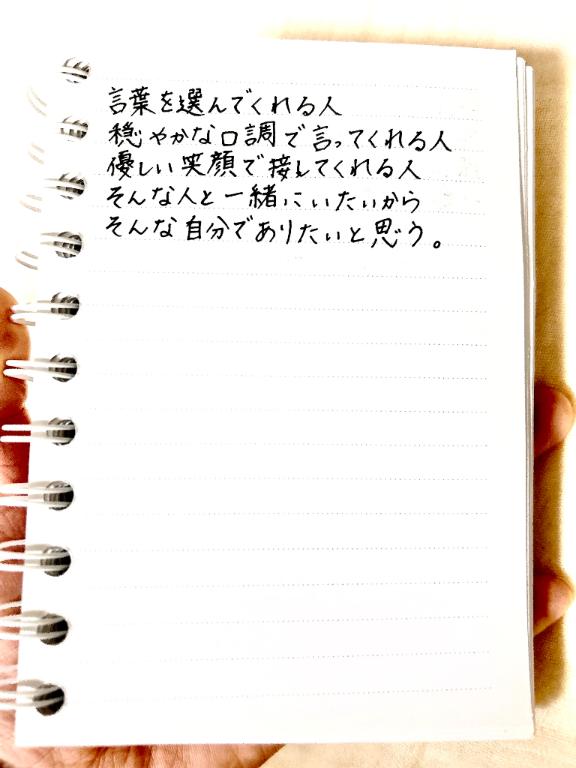 言葉を選んでくれる人
穏やかな口調で言ってくれる人
優しい笑顔で接してくれる人
そんな人と一緒にいたいから
そんな自分でありたいと思う。